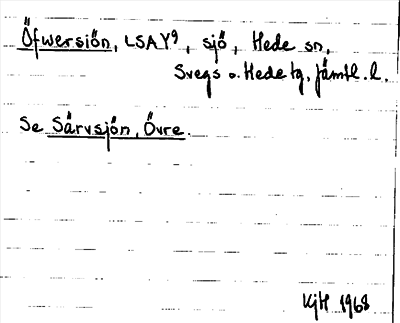 Öfwersiön, LSAY⁹, sjö, Hede sn,
Svegs o. Hede tg, Jämtl. l.
Se Särvsjön, Övre.
KjH 1968